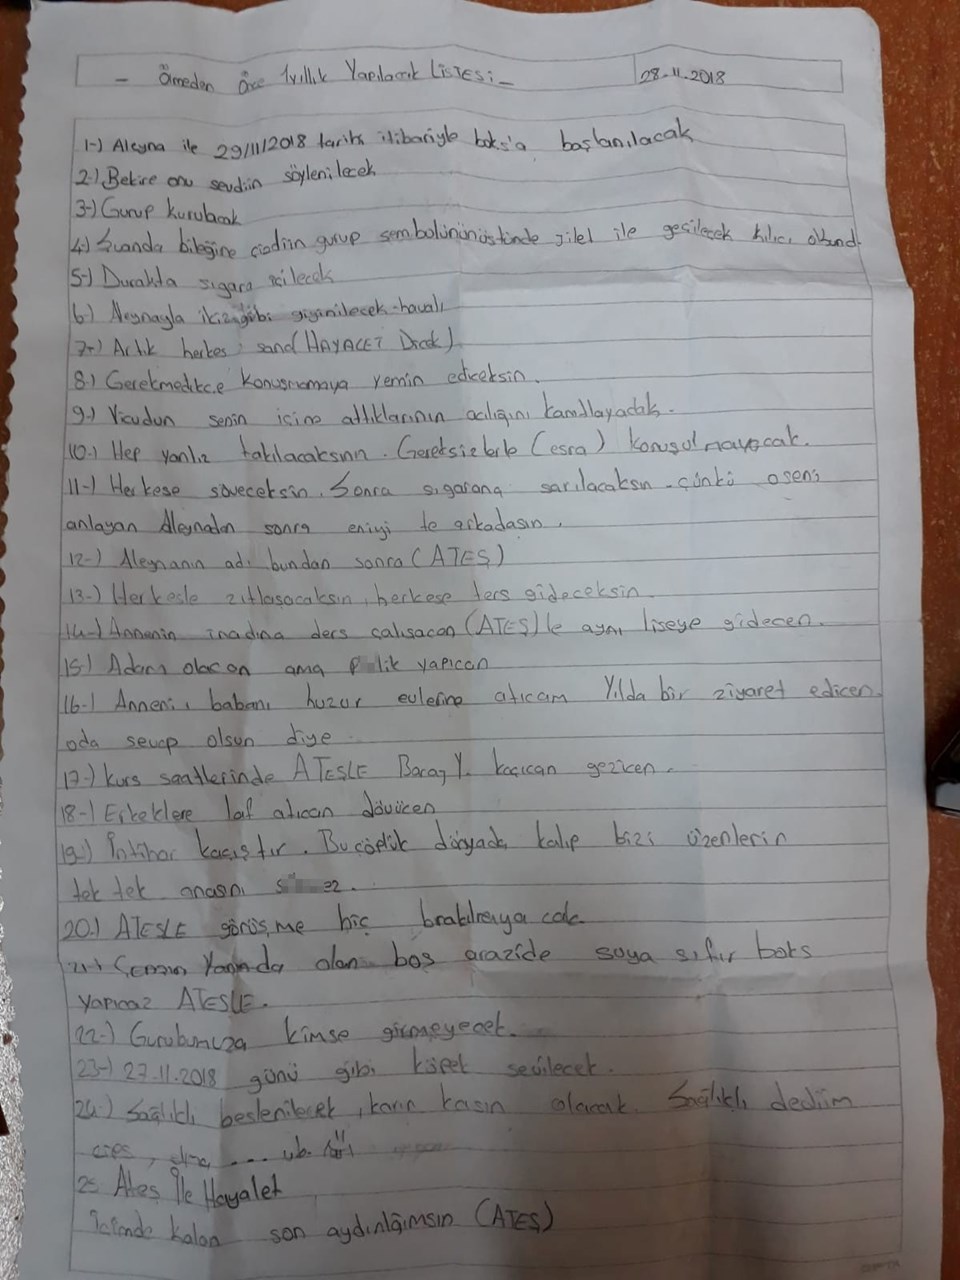 - Ölmeden Önce 1 yıllık Yapılacak LİSTESİ - 28.11.2018
1-) Aleyna ile 29/11/2018 tarihi itibariyle boks'a başlanılacak
2-) Bekire onu sevdiin söylenilecek
3-) Gurup kurulacak
4-) Şuanda bileğine çizdiin gurup sembolününüstünde jilet ile geçilecek kılıcı
5-) Durakta sigara içilecek
6-) Aleynayla ikiz gibi giyinilecek-havalı
7-) Artık herkes sana (HAYALET Dicek)
8-) Gerekmedikce konusmamaya yemin ediceksin.
9-) Vicudun senin icine attıklarının acılığını kanıtlayacak.
10-) Hep yanlız takılacaksın. Gereksizlerle (esra) konuşulmayacak.
11-) Herkese söveceksin. Sonra sigarana sarılacaksın çünkü o seni
anlayan Aleynadan sonra eniyi te arkadasın.
12-) Aleynanın adı bundan sonra (ATEŞ)
13-) Herkesle zıtlasacaksın, herkese ters gideceksin.
14-) Annenin inadına ders calısacan (ATEŞ)le aynı liseye gidecen.
15-) Adam olacan ama p lik yapıcan
16-) Anneni, babanı huzur evlerine atıcam Yılda bir ziyaret edicen.
oda sevap olsun diye.
17-) Kurs saatlerinde ATEŞLE kaçıcan gezicen.
18-) Erkeklere laf atıcan dövücen
19-) İntihar kaçıştır. Bu çöplük dünyada kalıp bizi üzenlerin
tek tek anasını s ez.
20-) ATEŞLE görüşme hiç bırakılmayacak.
21-) Yanında olan boş arazide suya sıfır boks
yapıcaz ATEŞLE.
22-) Gurubunuza kimse girmeyecek.
23-) 27.11.2018 günü gibi köpek sevilecek.
24-) Sağlıklı beslenilecek, karın kasın olacak. Sağlıklı dediim
cips, ... vb.
25 Ateş İle Hayalet
İcimde kalan son aydınlığımsın (ATEŞ)